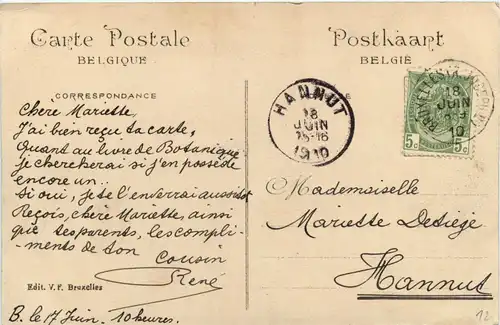 Carte Postale
BELGIQUE
Postkaart
BELGIË
CORRESPONDANCE
Chère Mariette,
J'ai bien reçu ta carte,
Quant au livre de Botanique,
je chercherai si j'en possède
encore un..
Si oui, je te l'enverrai aussitôt
Reçois, chère Mariette, ainsi
que tes parents, les compli-
ments de ton
cousin
René
Edit. V. F. Bruxelles
B. le 17 Juin. 10 heures.
HANNUT
18
JUIN
15-16
1910
18
JUIN
10
5c 5c
Mademoiselle
Mariette
Hannut
12